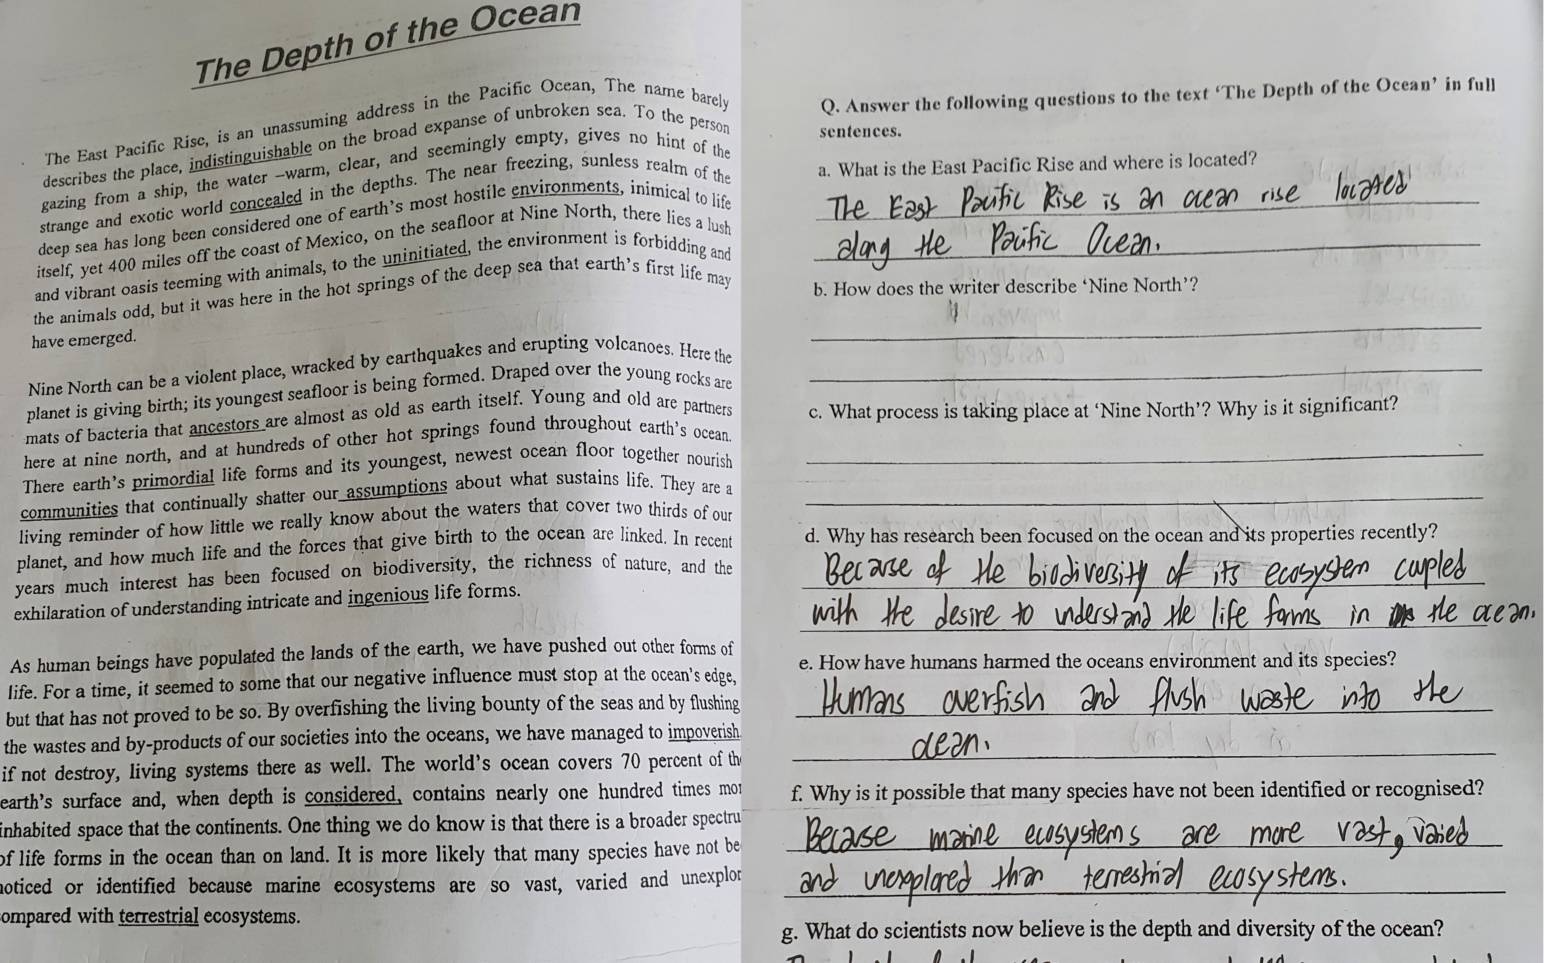 The Depth of the Ocean
The East Pacific Rise, is an unassuming address in the Pacific Ocean, The name barely
describes the place, indistinguishable on the broad expanse of unbroken sea. To the person
gazing from a ship, the water –warm, clear, and seemingly empty, gives no hint of the
strange and exotic world concealed in the depths. The near freezing, sunless realm of the
deep sea has long been considered one of earth's most hostile environments, inimical to life
itself, yet 400 miles off the coast of Mexico, on the seafloor at Nine North, there lies a lush
and vibrant oasis teeming with animals, to the uninitiated, the environment is forbidding and
the animals odd, but it was here in the hot springs of the deep sea that earth's first life may
have emerged.
Nine North can be a violent place, wracked by earthquakes and erupting volcanoes. Here the
planet is giving birth; its youngest seafloor is being formed. Draped over the young rocks are
mats of bacteria that ancestors are almost as old as earth itself. Young and old are partners
here at nine north, and at hundreds of other hot springs found throughout earth's ocean.
There earth's primordial life forms and its youngest, newest ocean floor together nourish
communities that continually shatter our assumptions about what sustains life. They are a
living reminder of how little we really know about the waters that cover two thirds of our
planet, and how much life and the forces that give birth to the ocean are linked. In recent
years much interest has been focused on biodiversity, the richness of nature, and the
exhilaration of understanding intricate and ingenious life forms.
As human beings have populated the lands of the earth, we have pushed out other forms of
life. For a time, it seemed to some that our negative influence must stop at the ocean's edge,
but that has not proved to be so. By overfishing the living bounty of the seas and by flushing
the wastes and by-products of our societies into the oceans, we have managed to impoverish
if not destroy, living systems there as well. The world's ocean covers 70 percent of th
earth's surface and, when depth is considered, contains nearly one hundred times mor
inhabited space that the continents. One thing we do know is that there is a broader spectru
of life forms in the ocean than on land. It is more likely that many species have not be
noticed or identified because marine ecosystems are so vast, varied and unexplor
compared with terrestrial ecosystems.
Q. Answer the following questions to the text 'The Depth of the Ocean' in full
sentences.
a. What is the East Pacific Rise and where is located?
The East Pacific Rise is an ocean rise located
along the Pacific Ocean.
b. How does the writer describe 'Nine North'?
c. What process is taking place at 'Nine North'? Why is it significant?
d. Why has research been focused on the ocean and its properties recently?
Because of the biodiversity of its ecosystem coupled
with the desire to understand the life forms in the ocean.
e. How have humans harmed the oceans environment and its species?
Humans overfish and flush waste into the
ocean.
f. Why is it possible that many species have not been identified or recognised?
Because marine ecosystems are more vast, varied
and unexplored than terrestrial ecosystems.
g. What do scientists now believe is the depth and diversity of the ocean?